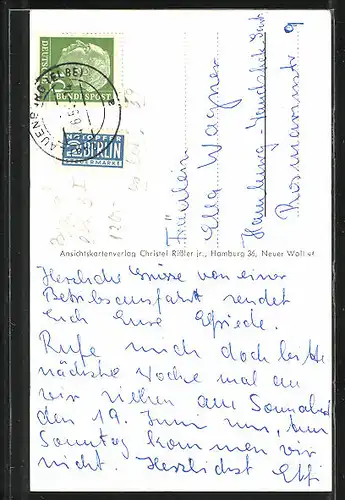 DEUTSCHE
BUNDESPOST
LAUENBURG (ELBE)
NOTOPFER
2 BERLIN
STEUERMARKE
Fräulein
Ella Wagner
Hamburg-Wandsbek
9
120.-
Ansichtskartenverlag Christel Rißler jr., Hamburg 36, Neuer Wall
Herzliche Grüsse von einer
Betriebsausfahrt sendet
Euch Eure Elfriede.
Rufe mich doch bitte
nächste Woche mal an
wir ziehen am Sonnabend
den 19. Juni um, zum
Sonntag kommen wir
nicht. Herzlichst